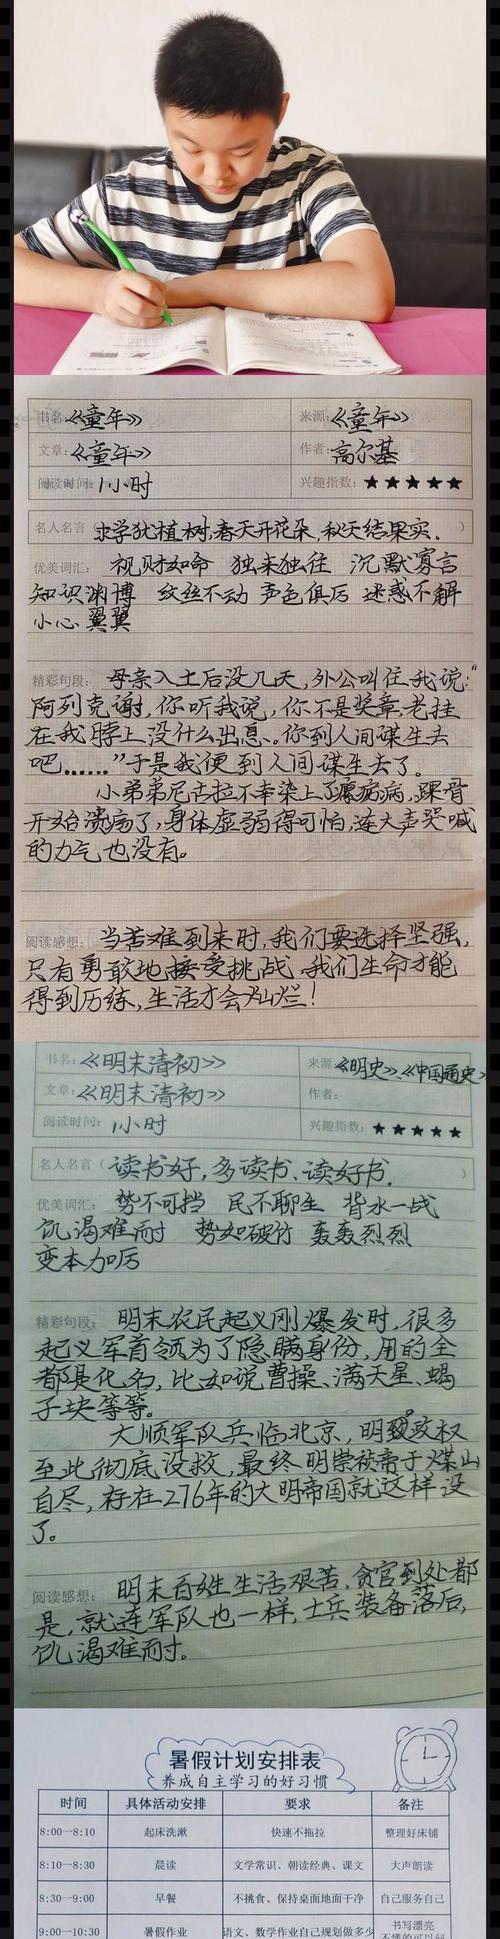 书名:《童年》 来源:《童年》
文章:《童年》 作者:高尔基
阅读时间:1小时 兴趣指数:★★★★★
名人名言(求学犹植树,春天开花朵,秋天结果实。)
优美词汇: 视财如命 独来独往 沉默寡言
知识渊博 纹丝不动 声色俱厉 迷惑不解
小心翼翼
精彩句段: 母亲入土后没几天,外公叫住我说:“
阿列克谢,你听我说,你不是奖章,老挂
在我脖上没什么出息。你到人间谋生去
吧……”于是我便到人间谋生去了。
小弟弟尼古拉不幸染上了瘰疬病,踝骨
开始溃疡了,身体虚弱得可怕,连大声哭喊
的力气也没有。
阅读感想: 当苦难到来时,我们要选择坚强,
只有勇敢地接受挑战,我们生命才能
得到历练,生活才会灿烂!
书名:《明末清初》 来源:《明史》、《中国通史》
文章:《明末清初》 作者:
阅读时间:1小时 兴趣指数:★★★★★
名人名言(读书好,多读书,读好书。)
优美词汇: 势不可挡 民不聊生 背水一战
饥渴难耐 势如破竹 轰轰烈烈
变本加厉
精彩句段: 明末农民起义刚爆发时,很多
起义军首领为了隐瞒身份,用的全
都是化名,比如说曹操、满天星、蝎
子块等等。
大顺军队兵临北京,明政权
至此彻底没救,最终明崇祯帝于煤山
自尽,存在276年的大明帝国就这样没
了。
阅读感想: 明末百姓生活艰苦,贪官到处都
是,就连军队也一样,士兵装备落后,
饥渴难耐。
暑假计划安排表
养成自主学习的好习惯
时间 具体活动安排 要求 备注
8:00—8:10 起床洗漱 快速不拖拉 整理好床铺
8:10—8:30 晨读 文学常识、朗读经典、课文 大声朗读
8:30—9:00 早餐 不挑食、保持桌面地面干净 自己服务自己
9:00—10:30 暑假作业 语文、数学作业自己规划做多少 书写漂亮
不懂的可以问